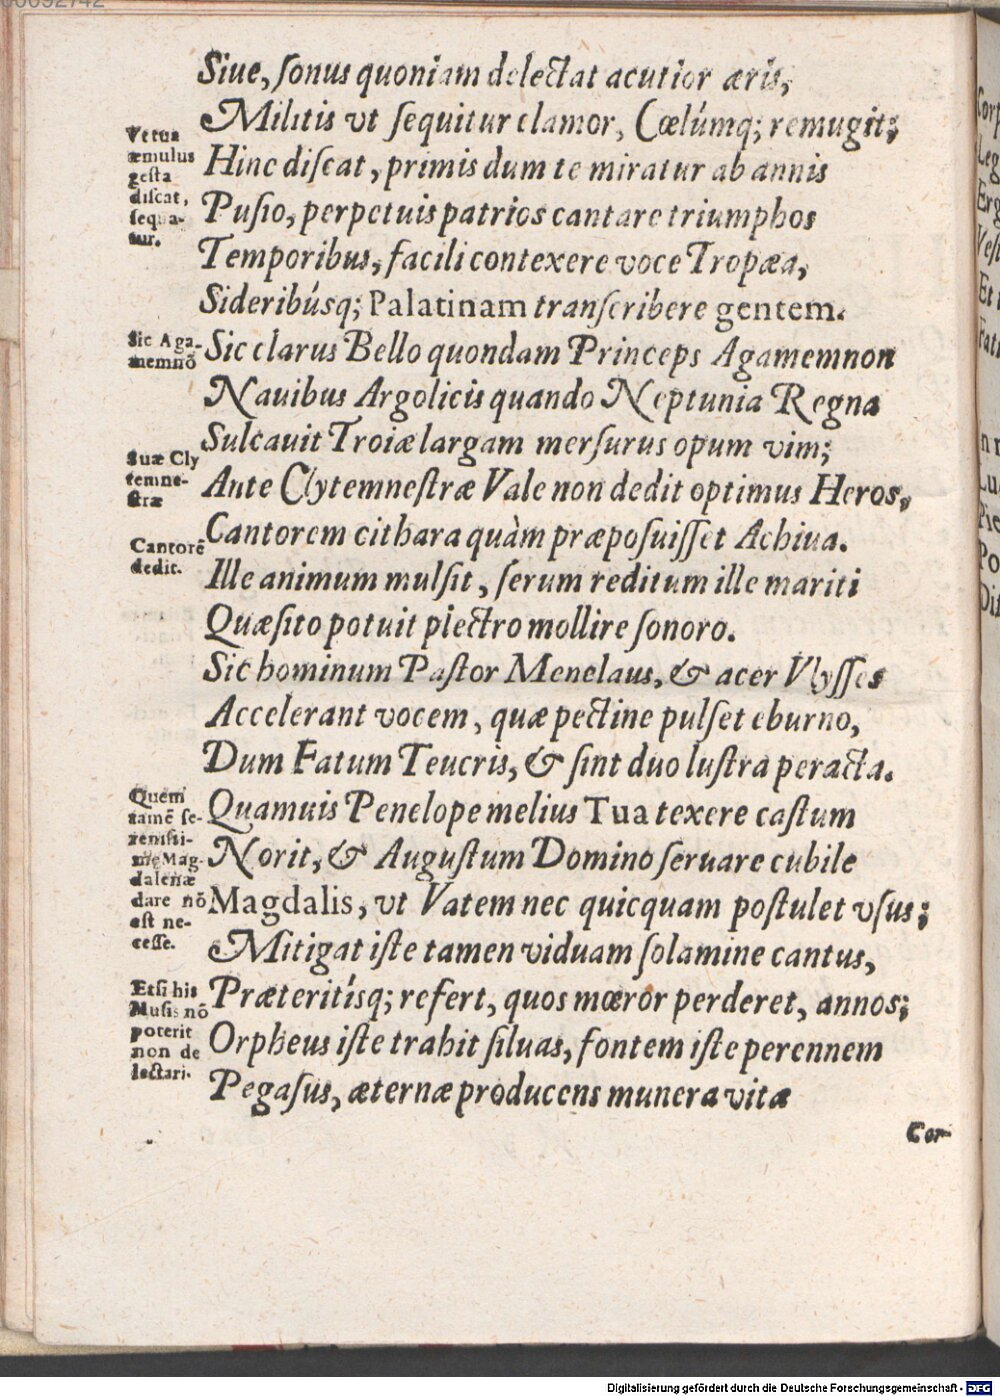 Siue, ſonus quoniam delectat acutior æris,
Militis vt ſequitur clamor, Cœlúmq; remugit;
Vt tua
æmulus
geſta
diſcat,
ſequa-
tur.
Hinc diſcat, primis dum te miratur ab annis
Puſio, perpetuis patrios cantare triumphos
Temporibus, facili contexere voce Tropæa,
Sideribúsq; Palatinam tranſcribere gentem.
Sic Aga-
memnō
Sic clarus Bello quondam Princeps Agamemnon
Nauibus Argolicis quando Neptunia Regna
Sulcauit Troiæ largam merſurus opum vim;
Suæ Cly
temne-
ſtræ
Ante Clytemneſtræ Vale non dedit optimus Heros,
Cantorē
dedit.
Cantorem cithara quàm præpoſuiſſet Achiua.
Ille animum mulſit, ſerum reditum ille mariti
Quæſito potuit plectro mollire ſonoro.
Sic hominum Paſtor Menelaus, & acer Vlyſſes
Accelerant vocem, quæ pectine pulſet eburno,
Dum Fatum Teucris, & ſint duo luſtra peracta.
Quem
tamē ſe-
reniſsi-
mę Mag-
dalenæ
dare nō
eſt ne-
ceſſe.
Quamuis Penelope melius Tua texere caſtum
Norit, & Auguſtum Domino ſeruare cubile
Magdalis, vt Vatem nec quicquam poſtulet vſus;
Mitigat iſte tamen viduam ſolamine cantus,
Etſi his
Muſis nō
poterit
non de
lectari.
Præteritísq; refert, quos mœror perderet, annos;
Orpheus iſte trahit ſiluas, fontem iſte perennem
Pegaſus, æternæ producens munera vitæ
Cor-
Digitalisierung gefördert durch die Deutsche Forschungsgemeinschaft - DFG